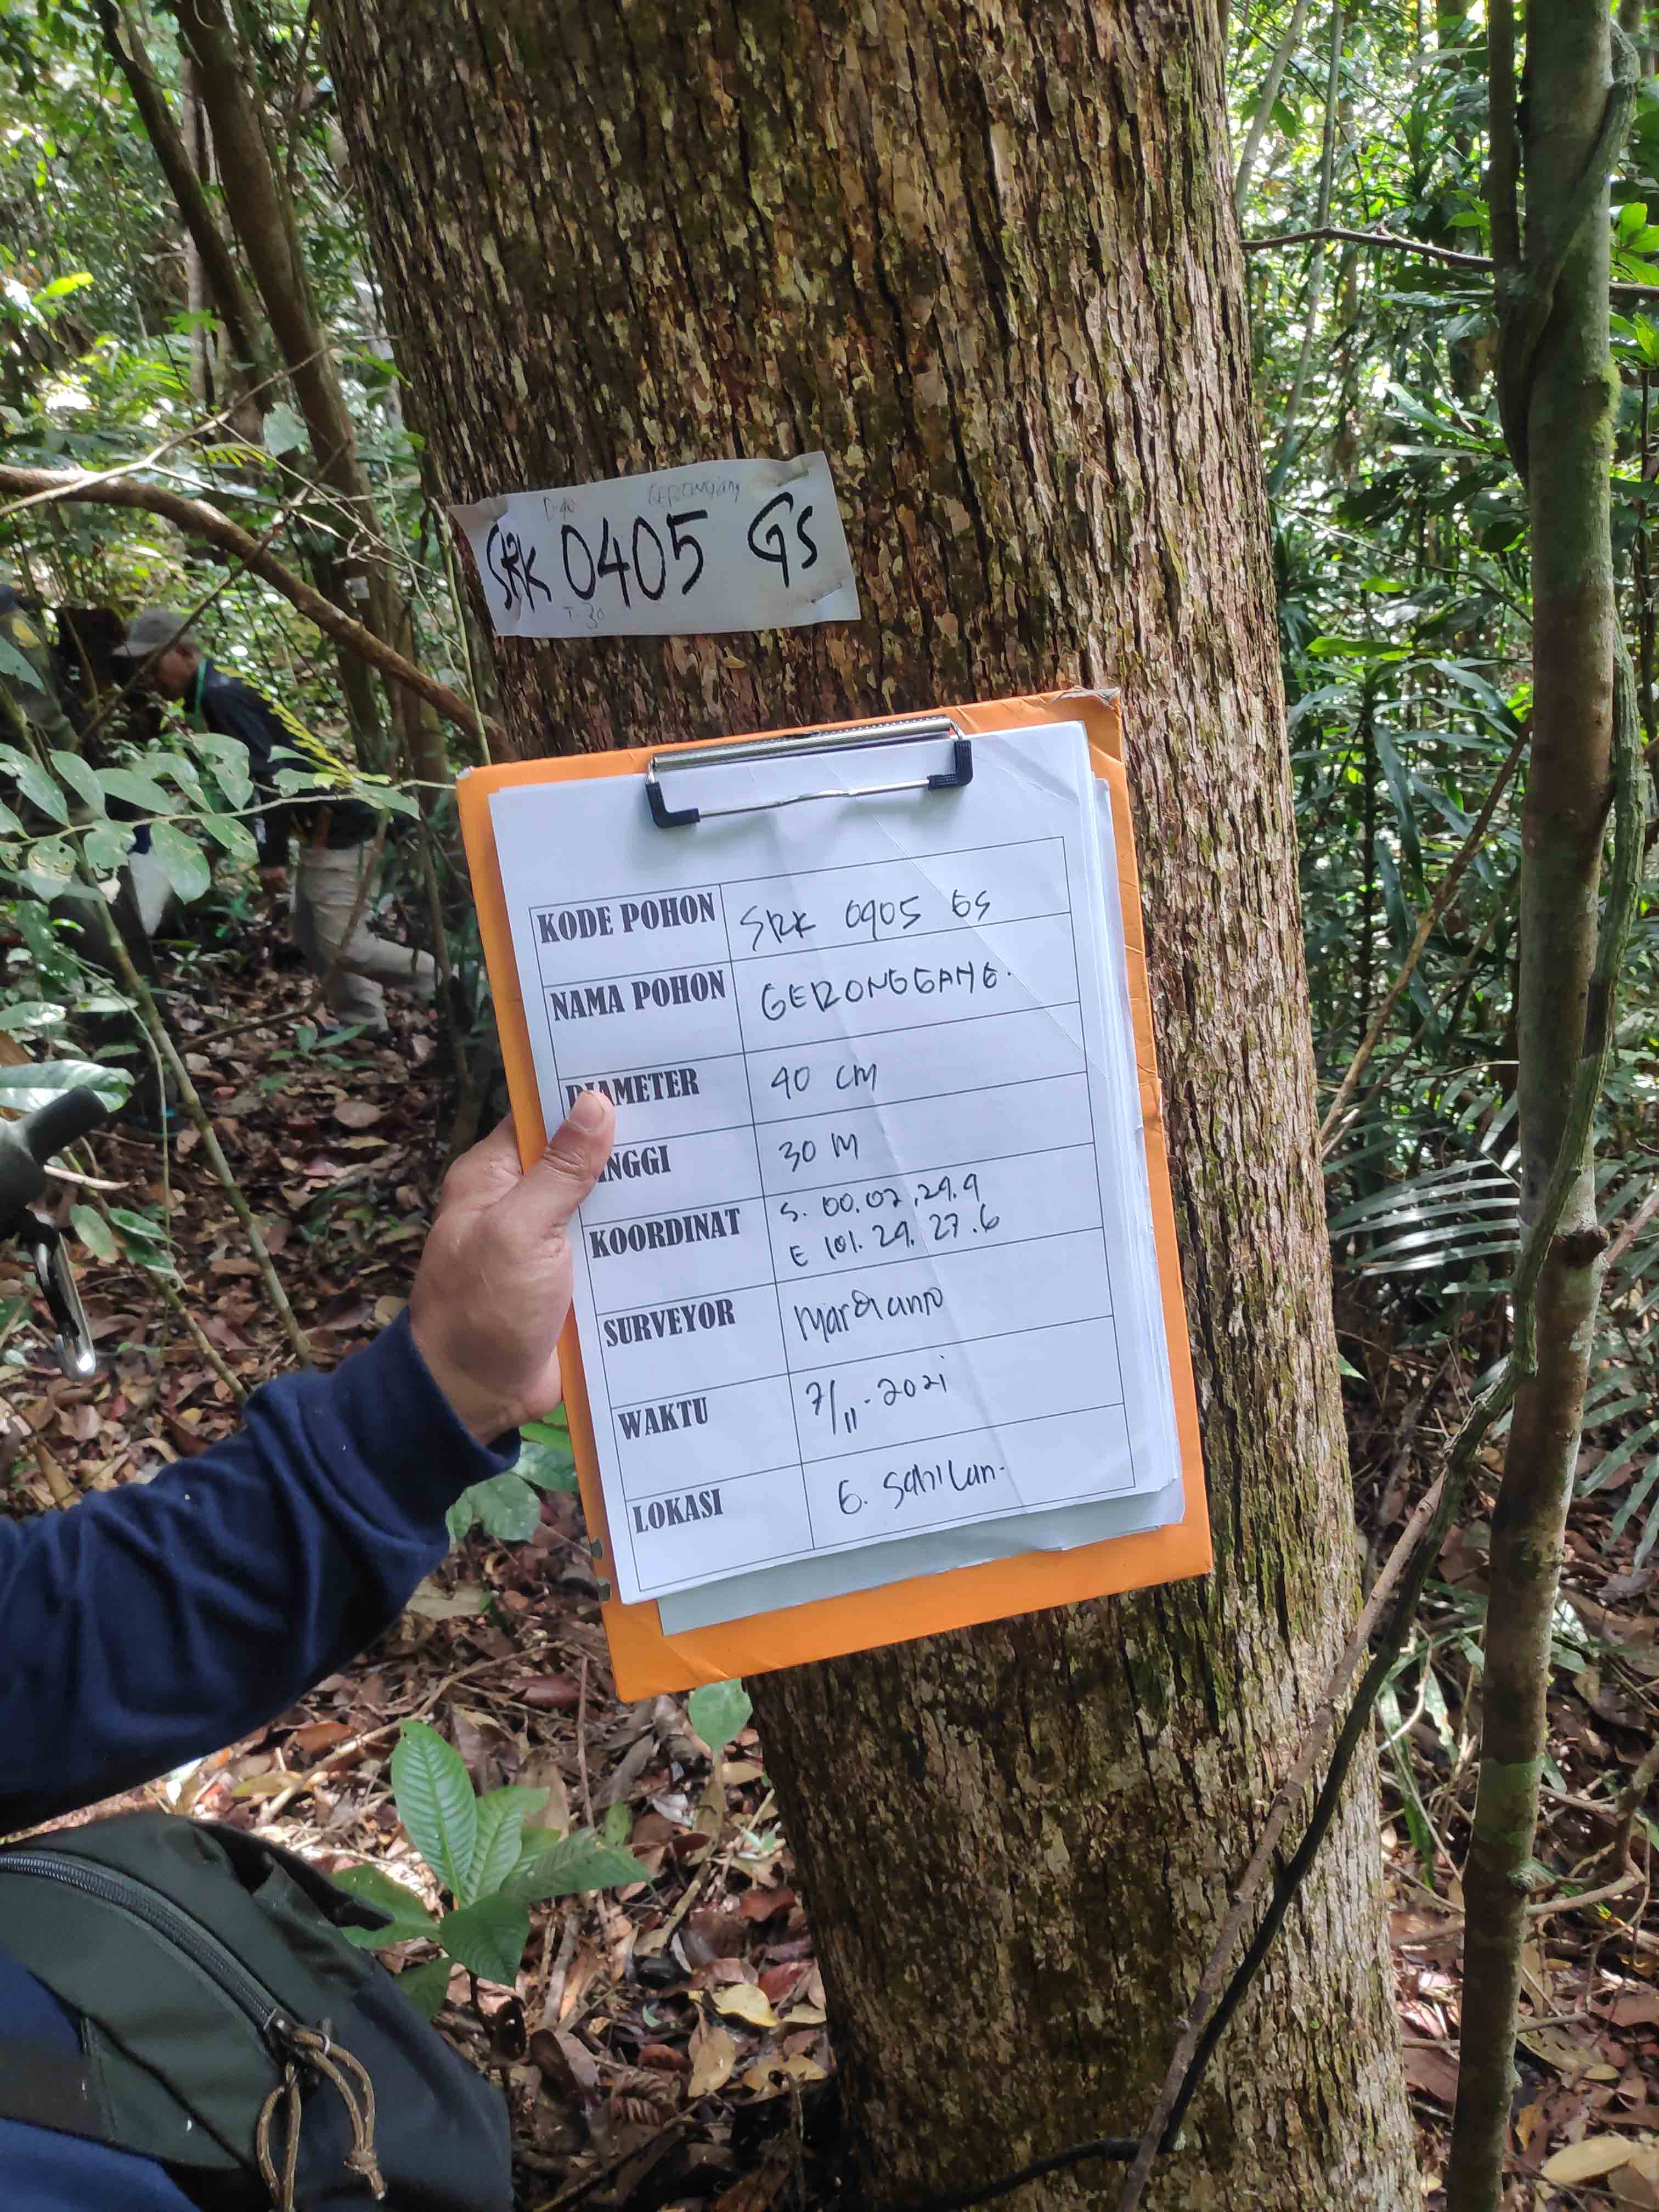 D-40 GERONGgang
SRK 0405 GS
T-30
KODE POHON SRK 0405 GS
NAMA POHON GERONGGANG.
DIAMETER 40 cm
INGGI 30 M
KOORDINAT S. 00.07.29.9
E 101. 29. 27.6
SURVEYOR Mardianto
WAKTU 7/11-2021
LOKASI G. Sahilan.